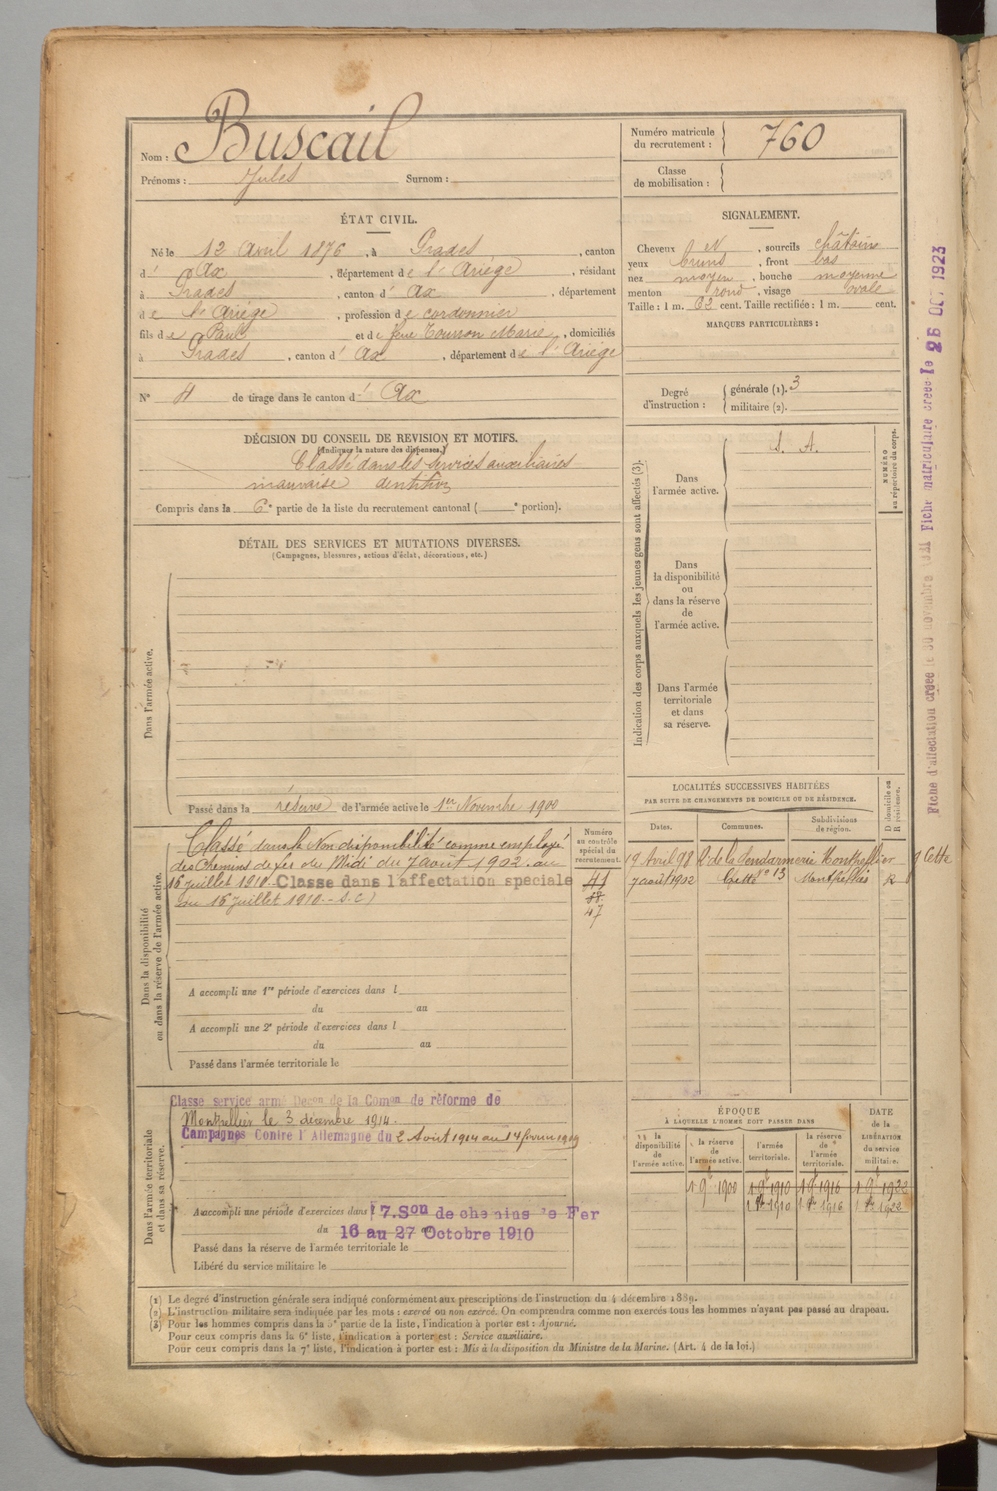 Nom : Buscail
Prénoms : Jules Surnom :
Numéro matricule du recrutement : 760
Classe de mobilisation :
ÉTAT CIVIL.
Né le 12 Avril 1876, à Prades, canton
d' Ax, département de l'Ariège, résidant
à Prades, canton d' Ax, département
de l'Ariège, profession de cordonnier
fils de Paul et de feue Tournon Marie, domiciliés
à Prades, canton d' Ax, département de l'Ariège
N° 4 de tirage dans le canton d' Ax
SIGNALEMENT.
Cheveux N, sourcils châtains
yeux bruns, front bas
nez moyen, bouche moyenne
menton rond, visage ovale
Taille : 1 m. 62 cent. Taille rectifiée : 1 m. cent.
MARQUES PARTICULIÈRES :
Degré d'instruction : générale (1). 3
militaire (2).
DÉCISION DU CONSEIL DE REVISION ET MOTIFS.
(Indiquer la nature des dispenses.)
Classé dans les services auxiliaires
mauvaise dentition
Compris dans la 6e partie de la liste du recrutement cantonal ( e portion).
DÉTAIL DES SERVICES ET MUTATIONS DIVERSES.
(Campagnes, blessures, actions d'éclat, décorations, etc.)
Dans l'armée active.
Passé dans la réserve de l'armée active le 1er Novembre 1900
Indication des corps auxquels les jeunes gens sont affectés (3).
Dans l'armée active.
S. A.
NUMÉRO au répertoire du corps.
Dans la disponibilité ou dans la réserve de l'armée active.
Dans l'armée territoriale et dans sa réserve.
Dans la disponibilité ou dans la réserve de l'armée active.
Classé dans la Non disponibilité comme employé
des Chemins de fer du Midi du 7 août 1902 au
16 juillet 1910. Classe dans l'affectation speciale
du 16 juillet 1910. - S. C)
Numéro au contrôle spécial du recrutement.
41
58
47
A accompli une 1re période d'exercices dans l
du au
A accompli une 2e période d'exercices dans l
du au
Passé dans l'armée territoriale le
LOCALITÉS SUCCESSIVES HABITÉES
PAR SUITE DE CHANGEMENTS DE DOMICILE OU DE RÉSIDENCE.
Dates. Communes. Subdivisions de région. D domicile ou R résidence.
19 Avril 98 R. de la Gendarmerie Montpellier 9 Cette
7 août 1902 Cette n° 13 Montpellier R
Dans l'armée territoriale et dans sa réserve.
Classe service armé Decon de la Comon de réforme de
Montpellier le 3 décembre 1914.
Campagnes Contre l'Allemagne du 2 Août 1914 au 14 février 1919
A accompli une période d'exercices dans l 7. Son de chemins de Fer
du 16 au 27 Octobre 1910
Passé dans la réserve de l'armée territoriale le
Libéré du service militaire le
ÉPOQUE
À LAQUELLE L'HOMME DOIT PASSER DANS
DATE de la LIBÉRATION du service militaire.
la disponibilité de l'armée active. la réserve de l'armée active. l'armée territoriale. la réserve de l'armée territoriale.
1 9e 1900 1 9e 1910 1 9e 1916 1 9e 1922
1 8e 1910 1 8e 1916 1 8e 1922
(1) Le degré d'instruction générale sera indiqué conformément aux prescriptions de l'instruction du 4 décembre 1889.
(2) L'instruction militaire sera indiquée par les mots : exercé ou non exercé. On comprendra comme non exercés tous les hommes n'ayant pas passé au drapeau.
(3) Pour les hommes compris dans la 5e partie de la liste, l'indication à porter est : Ajourné.
Pour ceux compris dans la 6e liste, l'indication à porter est : Service auxiliaire.
Pour ceux compris dans la 7e liste, l'indication à porter est : Mis à la disposition du Ministre de la Marine. (Art. 4 de la loi.)
Fiche d'affectation créee le 30 novembre Fiche matriculaire créee le 26 OCT 1923